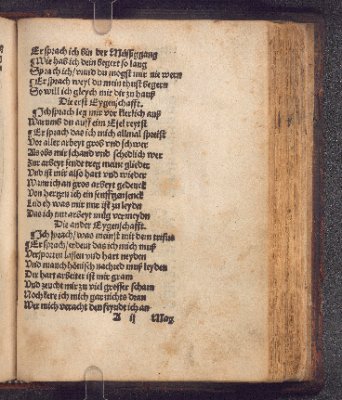 Er sprach ich bin der Müssygang
Wie hab ich dein begert so lang
Sprach ich / wiltu du mögst mir nie wern
Er sprach weyl du mein thust begern
So will ich gleych mit dir zu hauß
Die erst Eygenschafft.
Ich sprach leg mir vor klerlich auß
Warumb du auff eim Esel reytst
Er sprach das ich mich allmal spreist
Vor aller arbeyt groß und schwer
Als obs mir schand und schedlich wer
Zur arbeyt seudt treg meine glieder
Und ist mir also hart und wieder
Wann ich an gros arbeyt gedenck
Von hertzen ich ein seufftzen senck
Und eh was mir nur ist zu leyden
Das ich nur arbeyt mug vermeyden
Die ander Eygenschafft.
Ich sprach / was meinst mit dem
Er sprach / erdeut das ich mich muß
Verspotten lassen und hart neyden
Und manch hönisch nachred muß leyden
Der hart arbeiter ist mir gram
Und zeucht mir zu viel grosser scham
Noch kere ich mich gar nichts dran
Wer mich veracht den feyndt ich an
A ij Mag